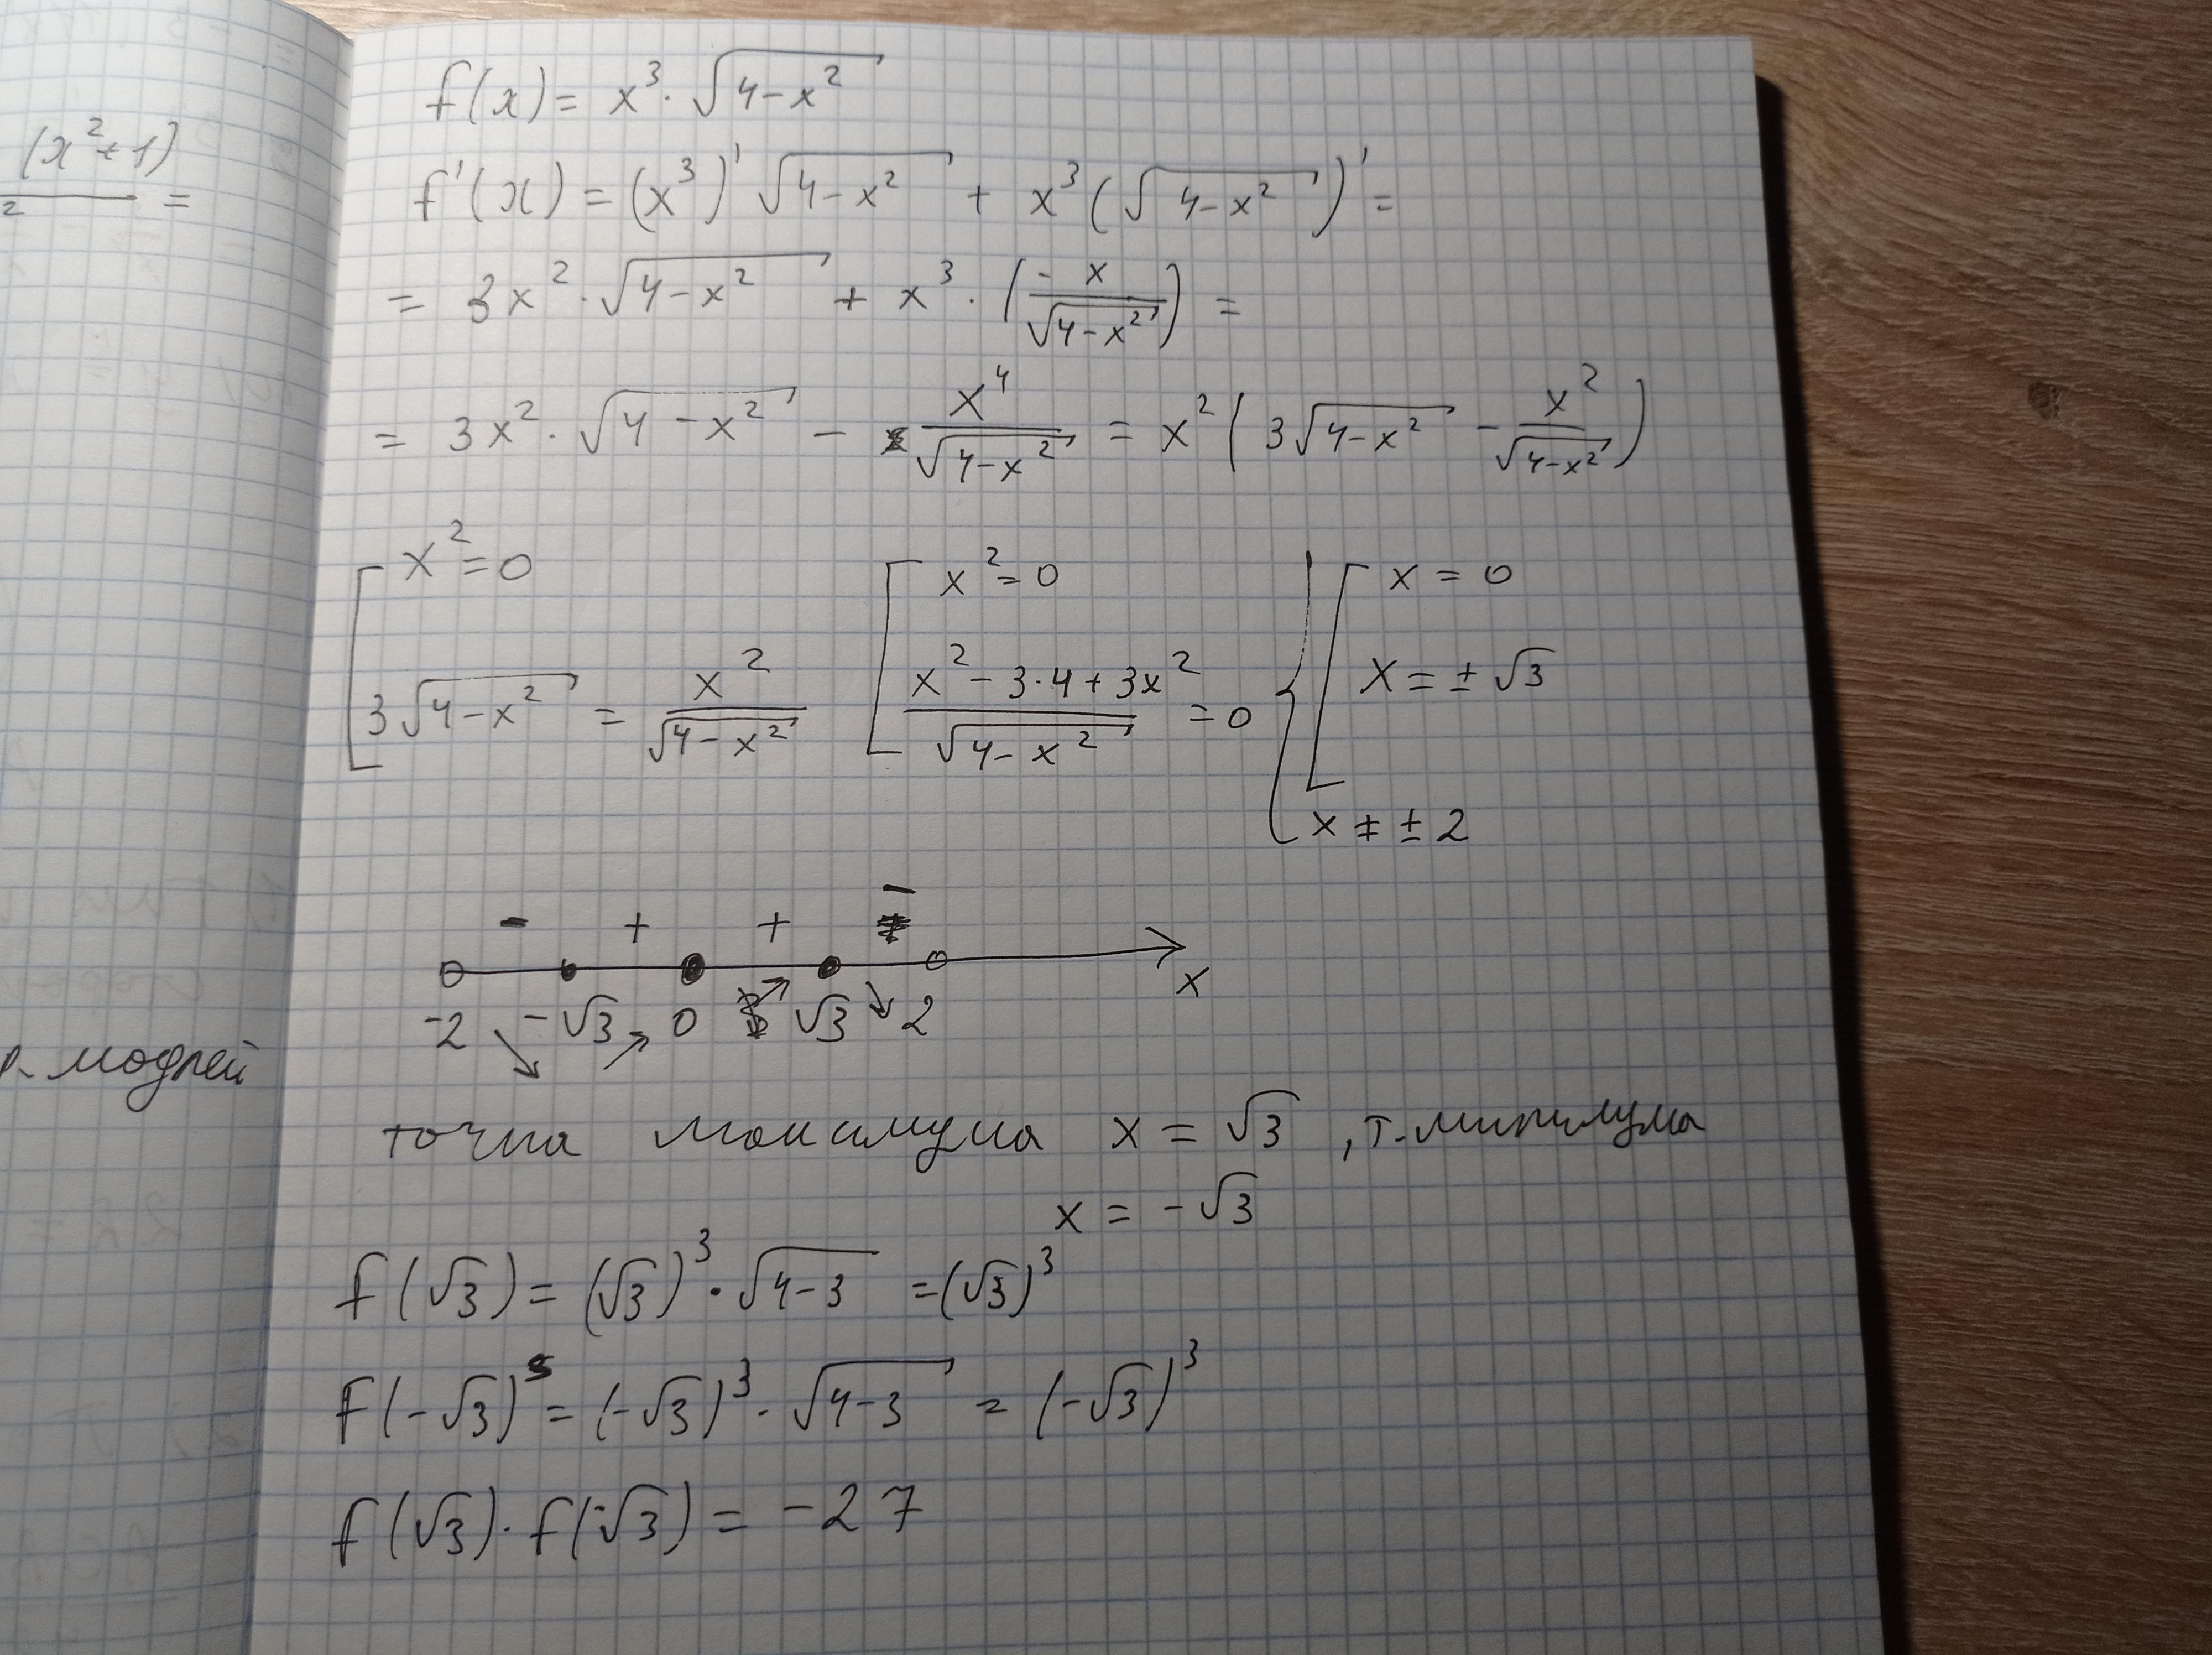 (x²+1)
2 =
р. модлей
f(x) = x³·√(4-x²)
f'(x) = (x³)'√(4-x²) + x³(√(4-x²))' =
= 3x²·√(4-x²) + x³·(-x/√(4-x²)) =
= 3x²·√(4-x²) - x⁴/√(4-x²) = x²(3√(4-x²) - x²/√(4-x²))
[x²=0 [x²=0 {[x=0
3√(4-x²) = x²/√(4-x²) (x²-3·4+3x²)/√(4-x²) = 0 x=±√3
x≠±2
- + + -
-2 -√3 0 √3 2 x
точка максимума x = √3, т. минимума
x = -√3
f(√3) = (√3)³·√(4-3) = (√3)³
f(-√3) = (-√3)³·√(4-3) = (-√3)³
f(√3)·f(-√3) = -27